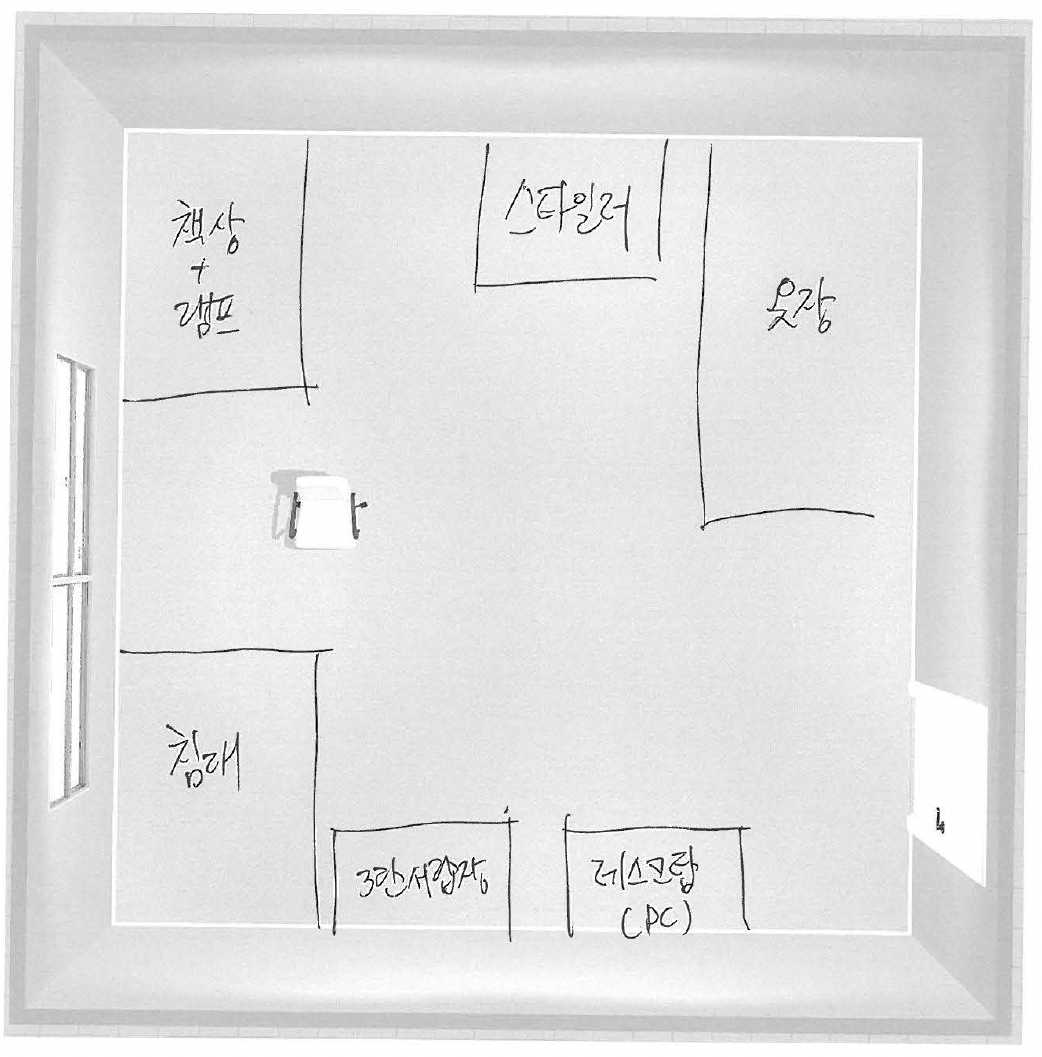 책상
+
램프
스타일러
옷장
침대
3단서랍장
데스크탑
(PC)